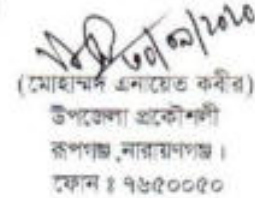 ৩০/০৯/২০২০
(মোহাম্মদ এনায়েত কবীর)
উপজেলা প্রকৌশলী
রূপগঞ্জ ,নারায়ণগঞ্জ ।
ফোন ঃ ৭৬৫০০৫০